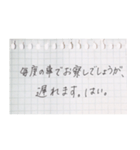 毎度の事でお察しでしょうが、
遅れます。はい。